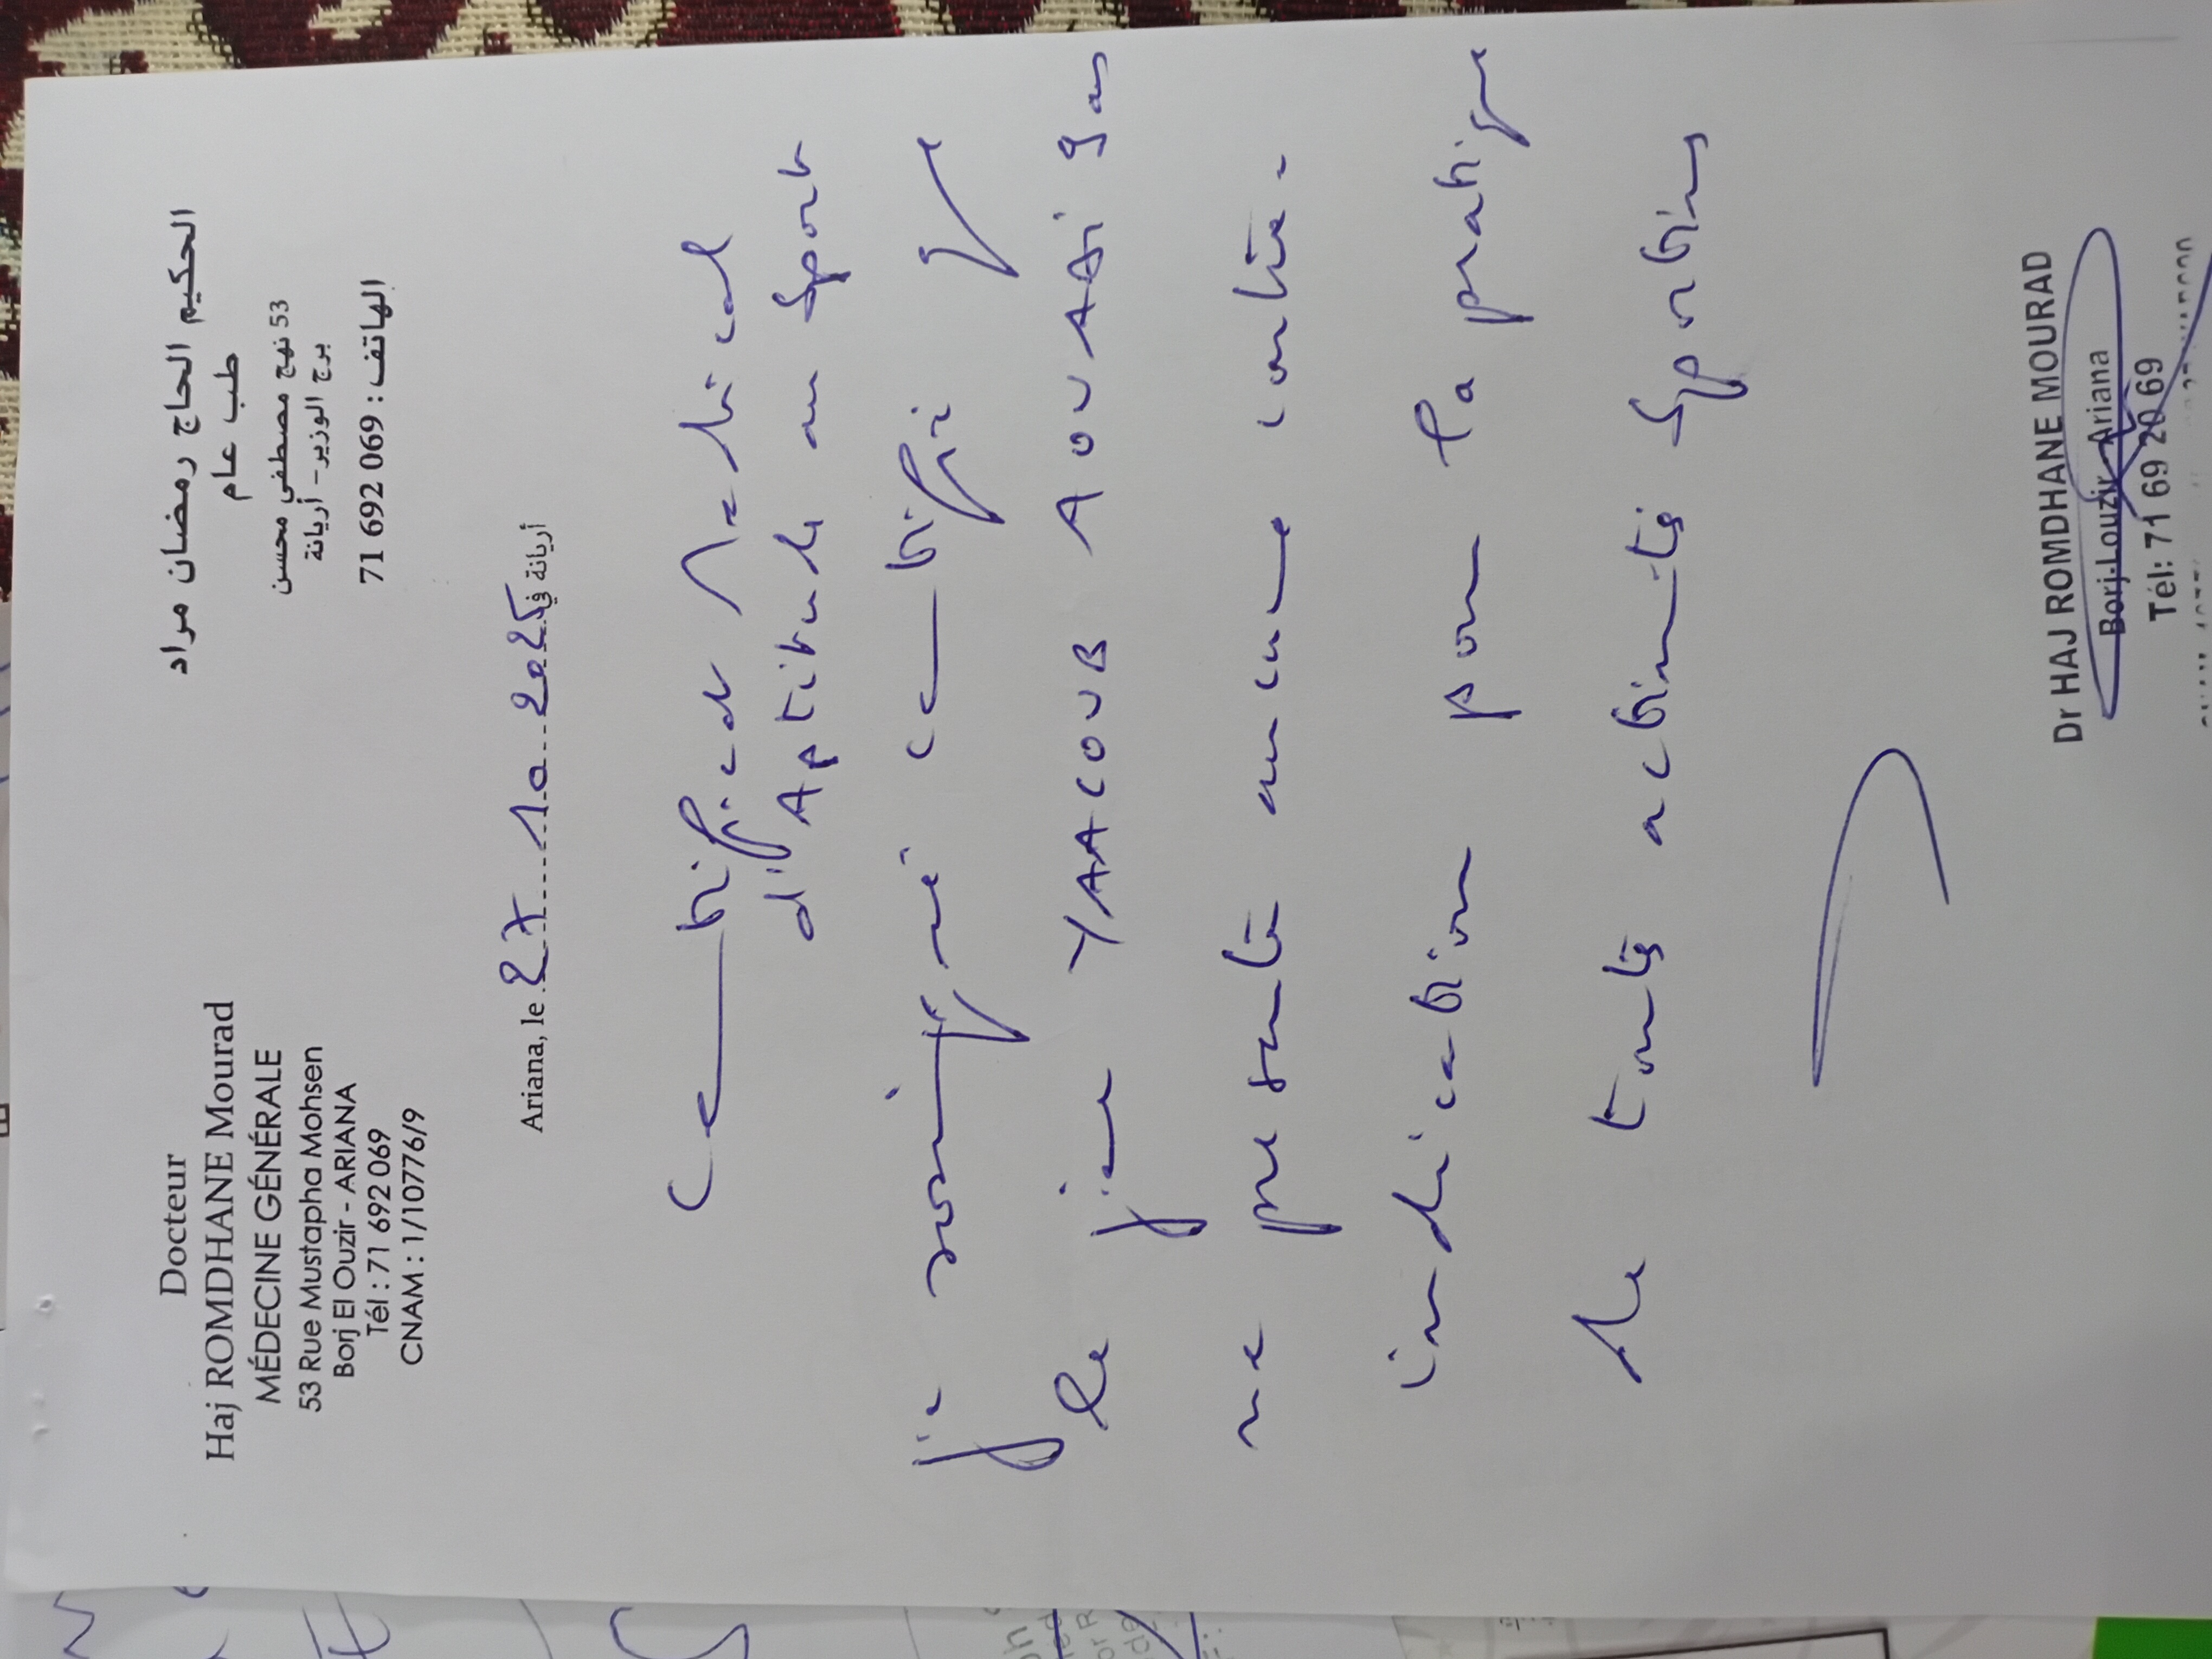 Docteur
Haj ROMDHANE Mourad
MÉDECINE GÉNÉRALE
53 Rue Mustapha Mohsen
Borj El Ouzir - ARIANA
Tél : 71 692 069
CNAM : 1/10776/9
الحكيم الحاج رمضان مراد
طب عام
53 نهج مصطفى محسن
برج الوزير - أريانة
الهاتف : 069 692 71
Ariana, le 27 10 2025 أريانة في
Certificat Medical
d'Aptitude au Sport
je soussigné certifie que
le jeune YAACOUB AOUADI 9 ans
ne présente aucune contre-
indication pour la pratique
de toutes activités sportives
Dr HAJ ROMDHANE MOURAD
Borj-Louzir-Ariana
Tél: 71 69 20 69